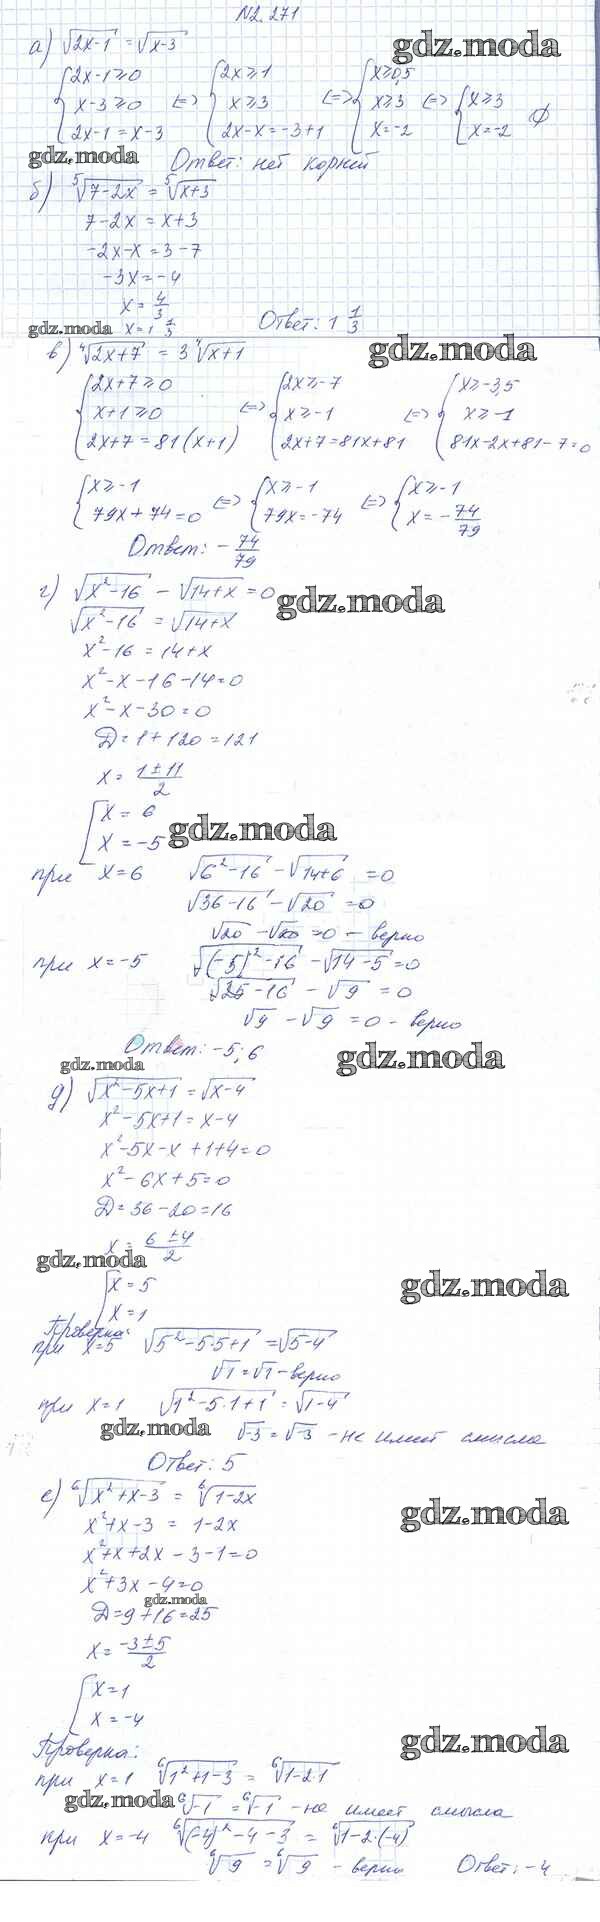 N2.271
а) √2x-1 = √x-3
gdz.moda
{2x-1⩾0 {2x⩾1 {x⩾0,5
{x-3⩾0 <=> {x⩾3 <=> {x⩾3 <=> {x⩾3
{2x-1=x-3 {2x-x=-3+1 {x=-2 {x=-2 ∅
gdz.moda
Ответ: нет корней
б) ⁵√7-2x = ⁵√x+3
7-2x = x+3
-2x-x = 3-7
-3x = -4
x = 4/3
gdz.moda
x = 1 1/3
Ответ: 1 1/3
в) ⁴√2x+7 = 3⁴√x+1
{2x+7⩾0 {2x⩾-7 {x⩾-3,5
{x+1⩾0 <=> {x⩾-1 <=> {x⩾-1
{2x+7=81(x+1) {2x+7=81x+81 {81x-2x+81-7=0
{x⩾-1 <=> {x⩾-1 <=> {x⩾-1
{79x+74=0 {79x=-74 {x=-74/79
Ответ: -74/79
г) √x²-16 - √14+x = 0
gdz.moda
√x²-16 = √14+x
x²-16 = 14+x
x²-x-16-14=0
x²-x-30=0
D=1+120=121
x= 1±11/2
[x=6
[x=-5
gdz.moda
при x=6 √6²-16 - √14+6 =0
√36-16 - √20 =0
√20 - √20 =0 - верно
при x=-5 √(-5)²-16 - √14-5 =0
√25-16 - √9 =0
√9 - √9 =0 - верно
Ответ: -5; 6
gdz.moda
gdz.moda
д) √x²-5x+1 = √x-4
x²-5x+1 = x-4
x²-5x-x+1+4=0
x²-6x+5=0
D=36-20=16
x= 6±4/2
gdz.moda
[x=5
[x=1
gdz.moda
Проверка:
при x=5 √5²-5·5+1 = √5-4
√1 = √1 - верно
при x=1 √1²-5·1+1 = √1-4
gdz.moda
√-3 = √-3 - не имеет смысла
Ответ: 5
е) ⁶√x²+x-3 = ⁶√1-2x
gdz.moda
x²+x-3 = 1-2x
x²+x+2x-3-1=0
x²+3x-4=0
gdz.moda
D=9+16=25
x= -3±5/2
[x=1
[x=-4
Проверка:
gdz.moda
при x=1 ⁶√1²+1-3 = ⁶√1-2·1
gdz.moda
⁶√-1 = ⁶√-1 - не имеет смысла
при x=-4 ⁶√(-4)²-4-3 = ⁶√1-2·(-4)
⁶√9 = ⁶√9 - верно Ответ: -4